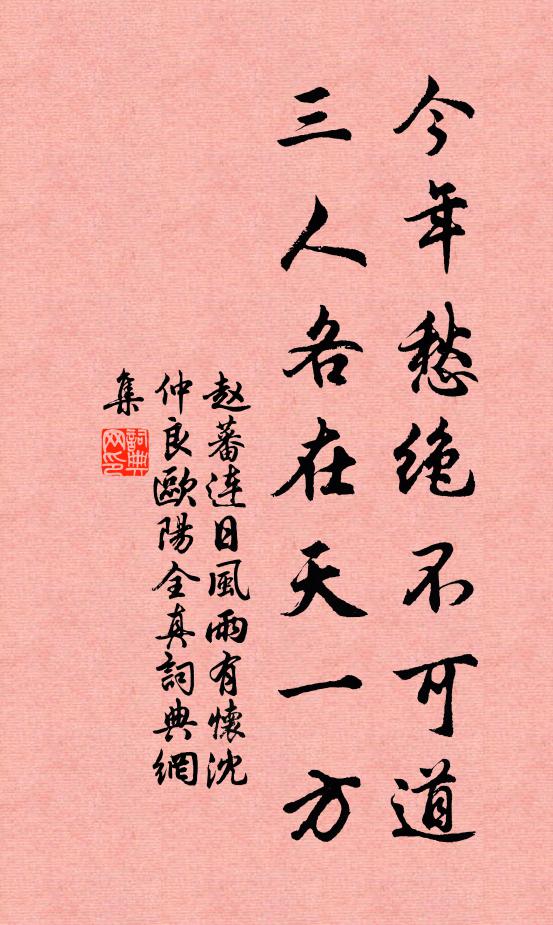 今年愁绝不可道
三人各在天一方
赵蕃連日風雨有懷沈
仲良歐陽全真詞典網
集
詞典
网印